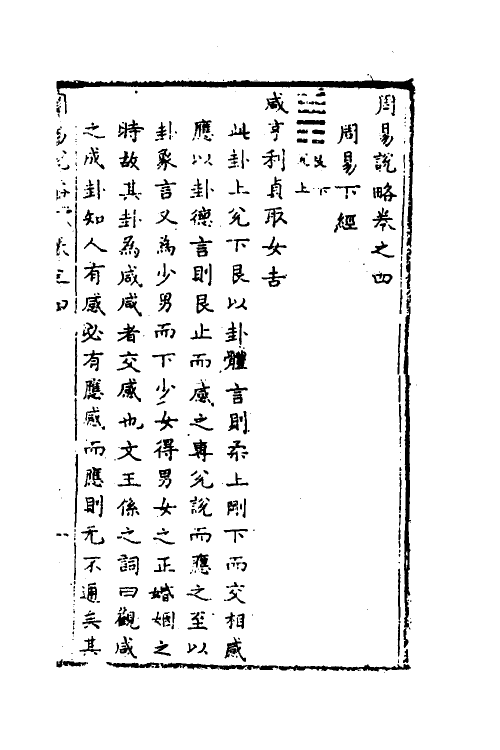 周易說略卷之四
周易下經
艮下
兌上
咸亨利貞取女吉
此卦上兌下艮以卦體言則柔上剛下而交相感
應以卦德言則艮止而感之專兌說而應之至以
卦象言又為少男而下少女得男女之正婚姻之
時故其卦為咸咸者交感也文王係之詞曰觀咸
之成卦知人有感必有應感而應則无不通矣其
周易說略 卷之四
一